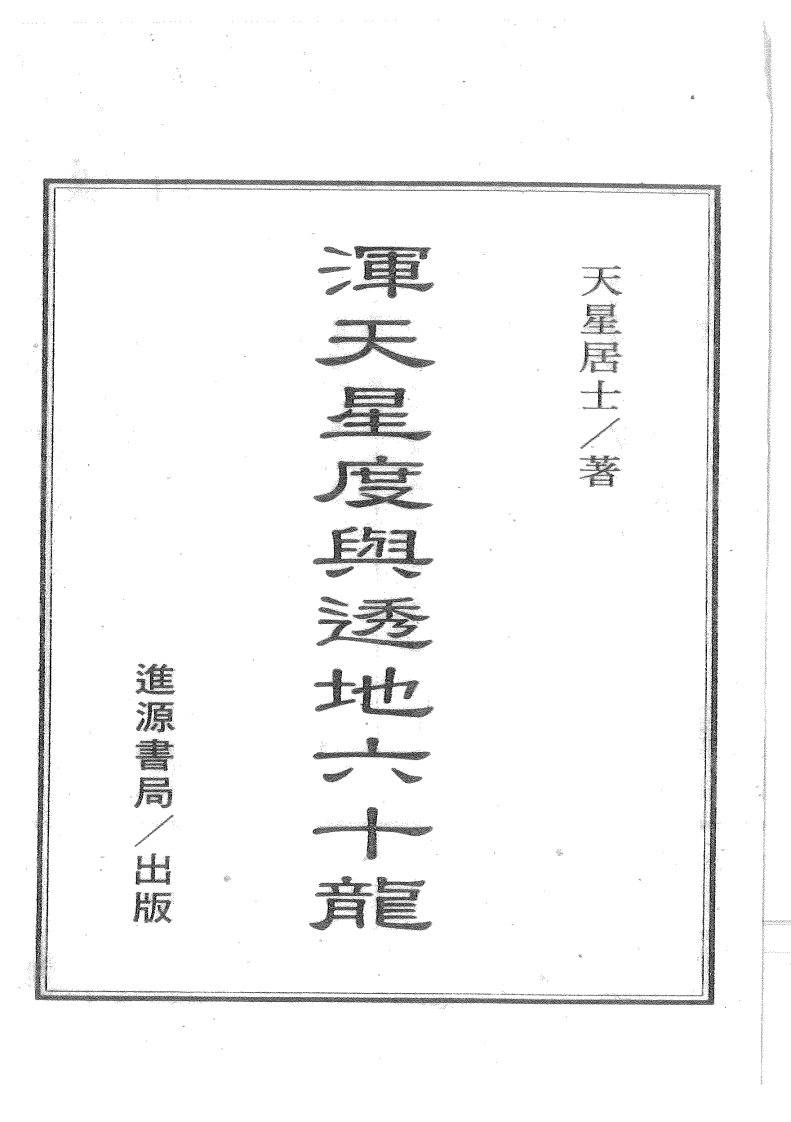 天星居士／著
渾天星度與透地六十龍
進源書局／出版